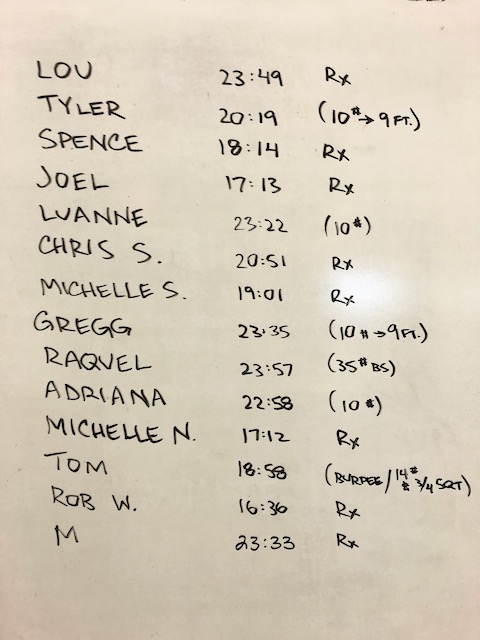 LOU 23:49 Rx
TYLER 20:19 (10#→9FT.)
SPENCE 18:14 Rx
JOEL 17:13 Rx
LUANNE 23:22 (10#)
CHRIS S. 20:51 Rx
MICHELLE S. 19:01 Rx
GREGG 23:35 (10#→9FT.)
RAQUEL 23:57 (35# BS)
ADRIANA 22:58 (10#)
MICHELLE N. 17:12 Rx
TOM 18:58 (BURPEE/14# & 3/4 SQT)
ROB W. 16:36 Rx
M 23:33 Rx